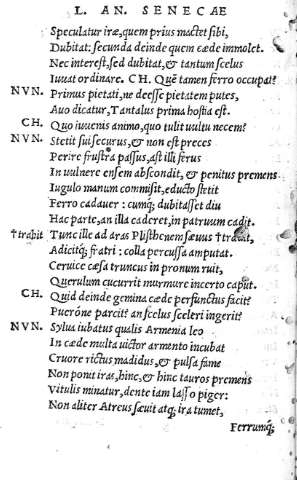 L. AN. SENECAE
Speculatur iræ, quem prius mactet sibi,
Dubitat: secunda deinde quem cæde immolet.
Nec interest, sed dubitat, & tantum scelus
Iuuat ordinare. CH. Quẽ tamen ferro occupat?
NVN. Primus pietati, ne deesse pietatem putes,
Auo dicatur, Tantalus prima hostia est.
CH. Quo iuuenis animo, quo tulit uultu necem?
NVN. Stetit sui securus, & non est preces
Perire frustra passus, ast illi ferus
In uulnere ensem abscondit, & penitus premens
Iugulo manum commisit, educto stetit
Ferro cadauer: cumq; dubitasset diu
Hac parte, an illa caderet, in patruum cadit.
†trabit Tunc ille ad aras Plisthenem sæuus †trabat,
Adicitq; fratri: colla percussa amputat.
Ceruice cæsa truncus in pronum ruit,
Querulum cucurrit murmure incerto caput.
CH. Quid deinde gemina cæde perfunctus facit?
Pueróne parcit? an scelus sceleri ingerit?
NVN. Sylua iubatus qualis Armenia leo
In cæde multa uictor armento incubat
Cruore rictus madidus, & pulsa fame
Non ponit iras, hinc, & hinc tauros premens
Vitulis minatur, dente iam lasso piger:
Non aliter Atreus sæuit atq; ira tumet,
Ferrumq;